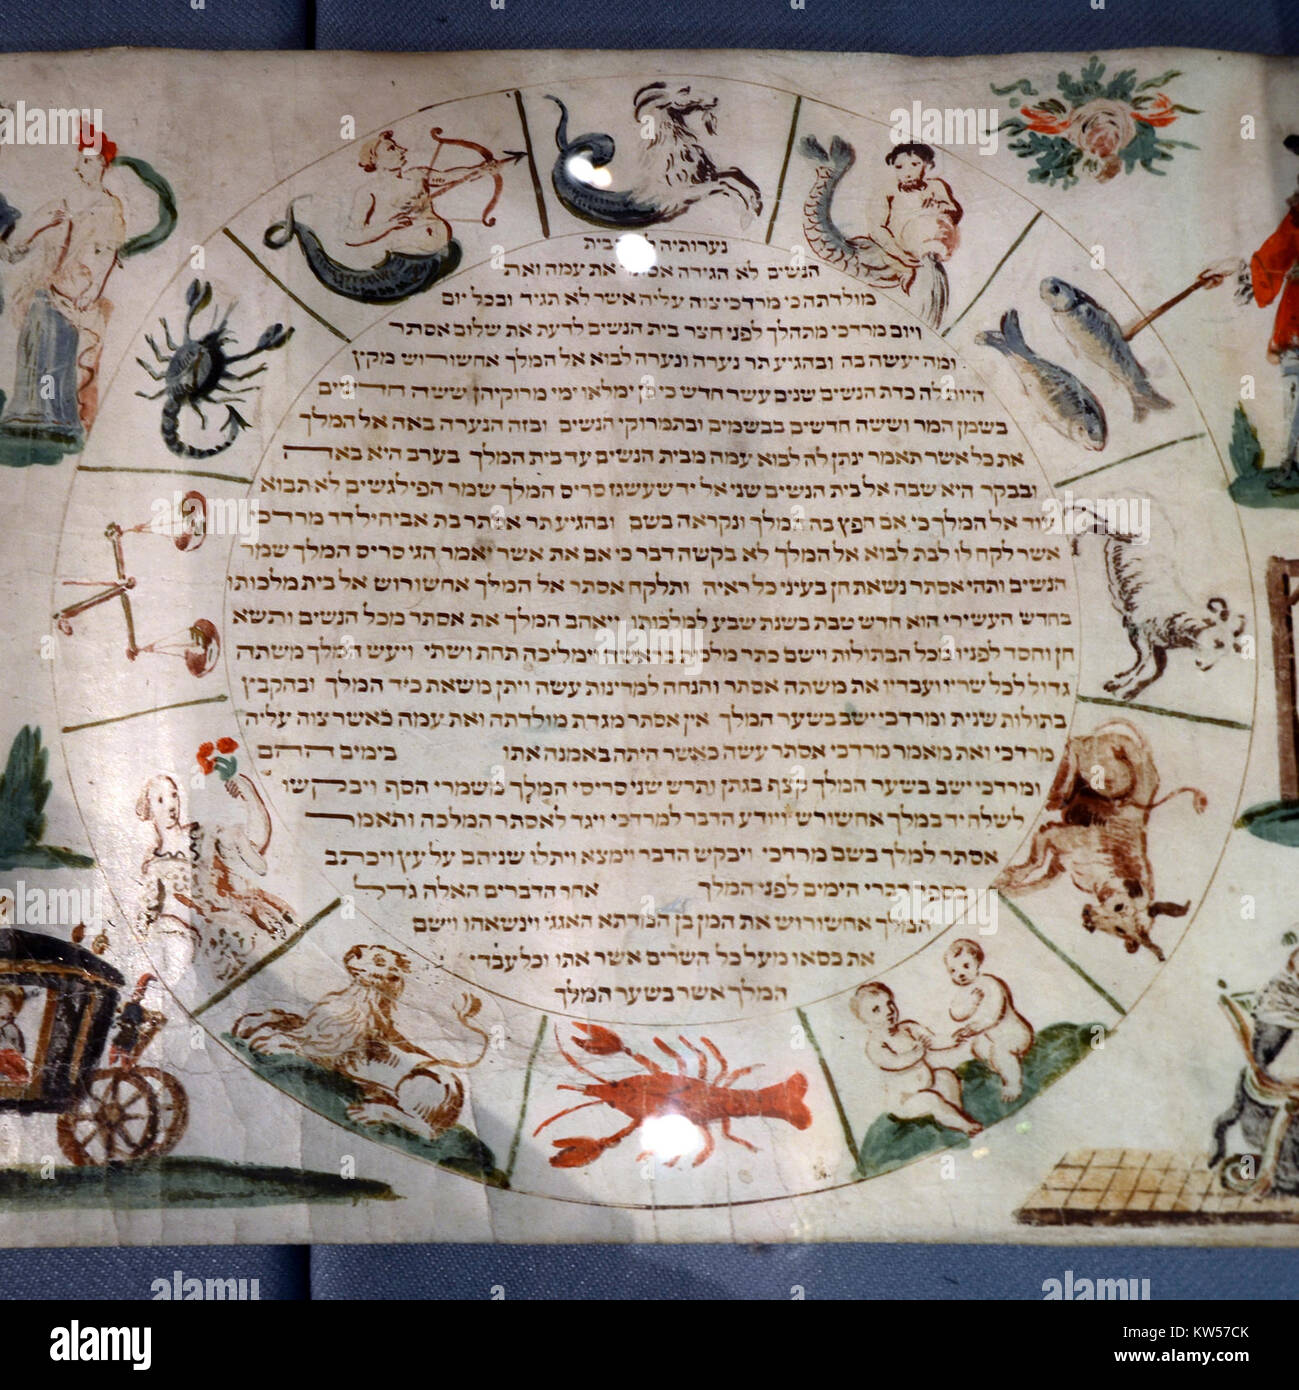 נערותיה בית
הנשים לא הגידה אסתר את עמה ואת
מולדתה כי מרדכי צוה עליה אשר לא תגיד ובכל יום
ויום מרדכי מתהלך לפני חצר בית הנשים לדעת את שלום אסתר
ומה יעשה בה ובהגיע תר נערה ונערה לבוא אל המלך אחשורוש מקץ
היות לה כדת הנשים שנים עשר חדש כי כן ימלאו ימי מרוקיהן ששה חדשים
בשמן המר וששה חדשים בבשמים ובתמרוקי הנשים ובזה הנערה באה אל המלך
את כל אשר תאמר ינתן לה לבוא עמה מבית הנשים עד בית המלך בערב היא באה
ובבקר היא שבה אל בית הנשים שני אל יד שעשגז סריס המלך שמר הפילגשים לא תבוא
עוד אל המלך כי אם חפץ בה המלך ונקראה בשם ובהגיע תר אסתר בת אביחיל דד מרדכי
אשר לקח לו לבת לבוא אל המלך לא בקשה דבר כי אם את אשר יאמר הגי סריס המלך שמר
הנשים ותהי אסתר נשאת חן בעיני כל ראיה ותלקח אסתר אל המלך אחשורוש אל בית מלכותו
בחדש העשירי הוא חדש טבת בשנת שבע למלכותו ויאהב המלך את אסתר מכל הנשים ותשא
חן וחסד לפניו מכל הבתולות וישם כתר מלכות בראשה וימליכה תחת ושתי ויעש המלך משתה
גדול לכל שריו ועבדיו את משתה אסתר והנחה למדינות עשה ויתן משאת כיד המלך ובהקבץ
בתולות שנית ומרדכי ישב בשער המלך אין אסתר מגדת מולדתה ואת עמה כאשר צוה עליה
מרדכי ואת מאמר מרדכי אסתר עשה כאשר היתה באמנה אתו בימים ההם
ומרדכי ישב בשער המלך קצף בגתן ותרש שני סריסי המלך משמרי הסף ויבקשו
לשלח יד במלך אחשורש ויודע הדבר למרדכי ויגד לאסתר המלכה ותאמר
אסתר למלך בשם מרדכי ויבקש הדבר וימצא ויתלו שניהם על עץ ויכתב
בספר דברי הימים לפני המלך אחר הדברים האלה גדל
המלך אחשורוש את המן בן המדתא האגגי וינשאהו וישם
את כסאו מעל כל השרים אשר אתו וכל עבדי
המלך אשר בשער המלך
alamy
Image ID: KW57CK
www.alamy.com